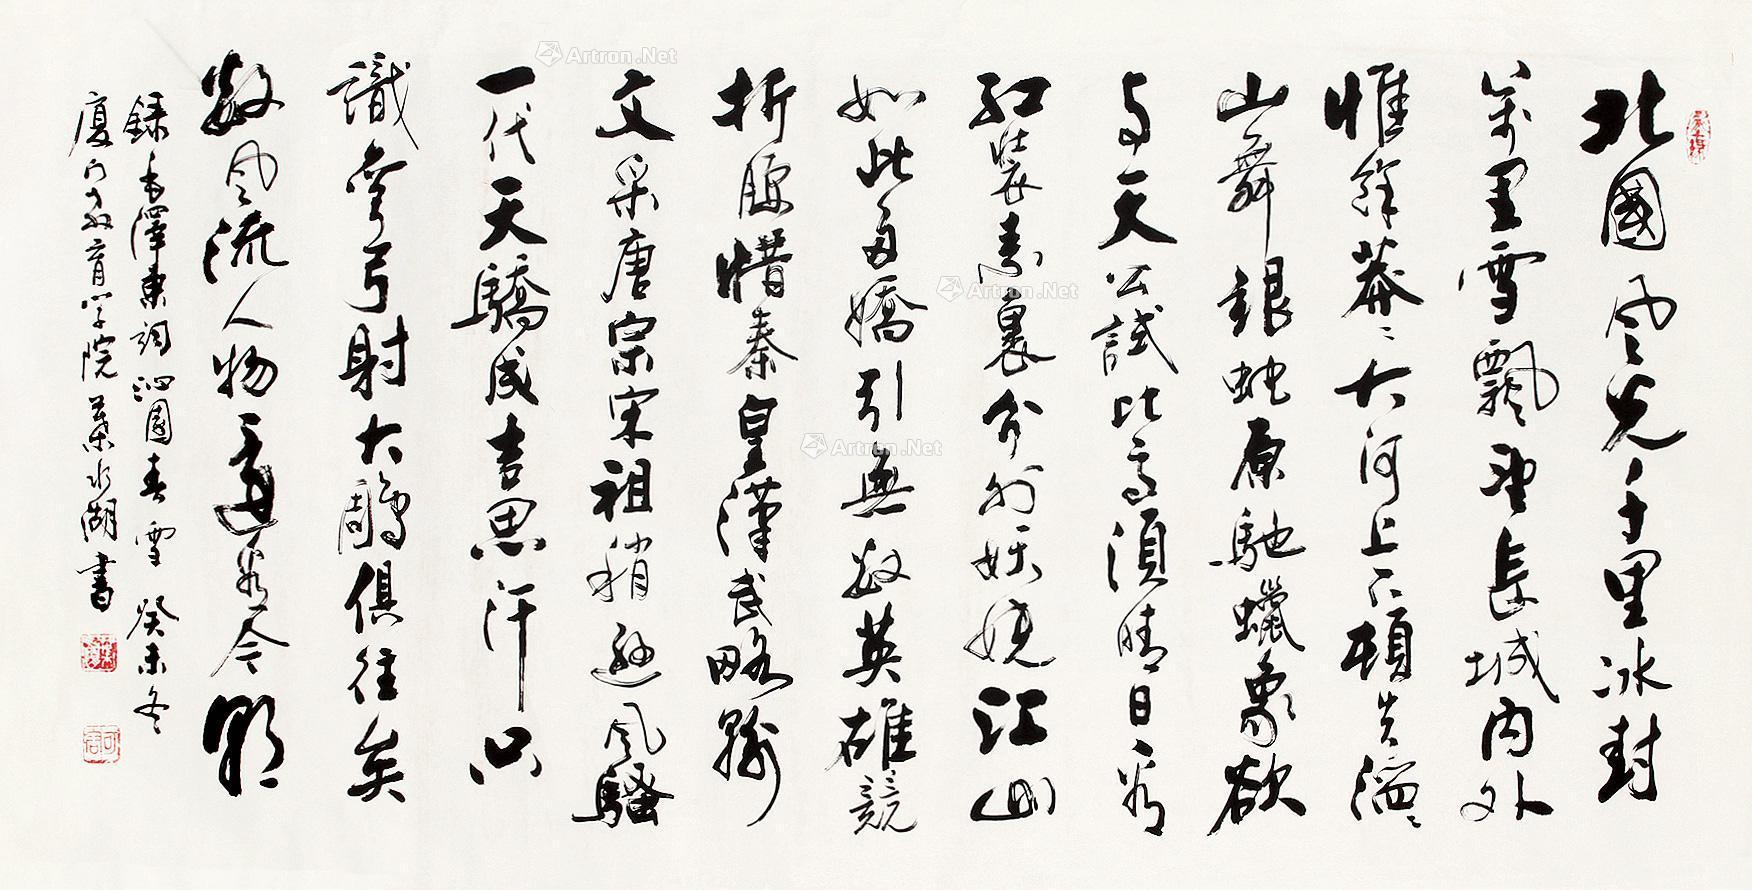 北國風光千里冰封
萬里雪飄望長城內外
惟餘莽〻大河上下頓失滔〻
山舞銀蛇原馳蠟象欲
与天公試比高須晴日看
紅裝素裹分外妖嬈江山
如此多嬌引無數英雄競
折腰惜秦皇漢武略輸
文采唐宗宋祖稍遜風騷
一代天驕成吉思汗只
識彎弓射大鵰俱往矣
數風流人物還看今朝
錄毛澤東詞沁園春雪 癸未冬
廈門教育學院葉水湖書
Artron.Net
Artron.Net
Artron.Net